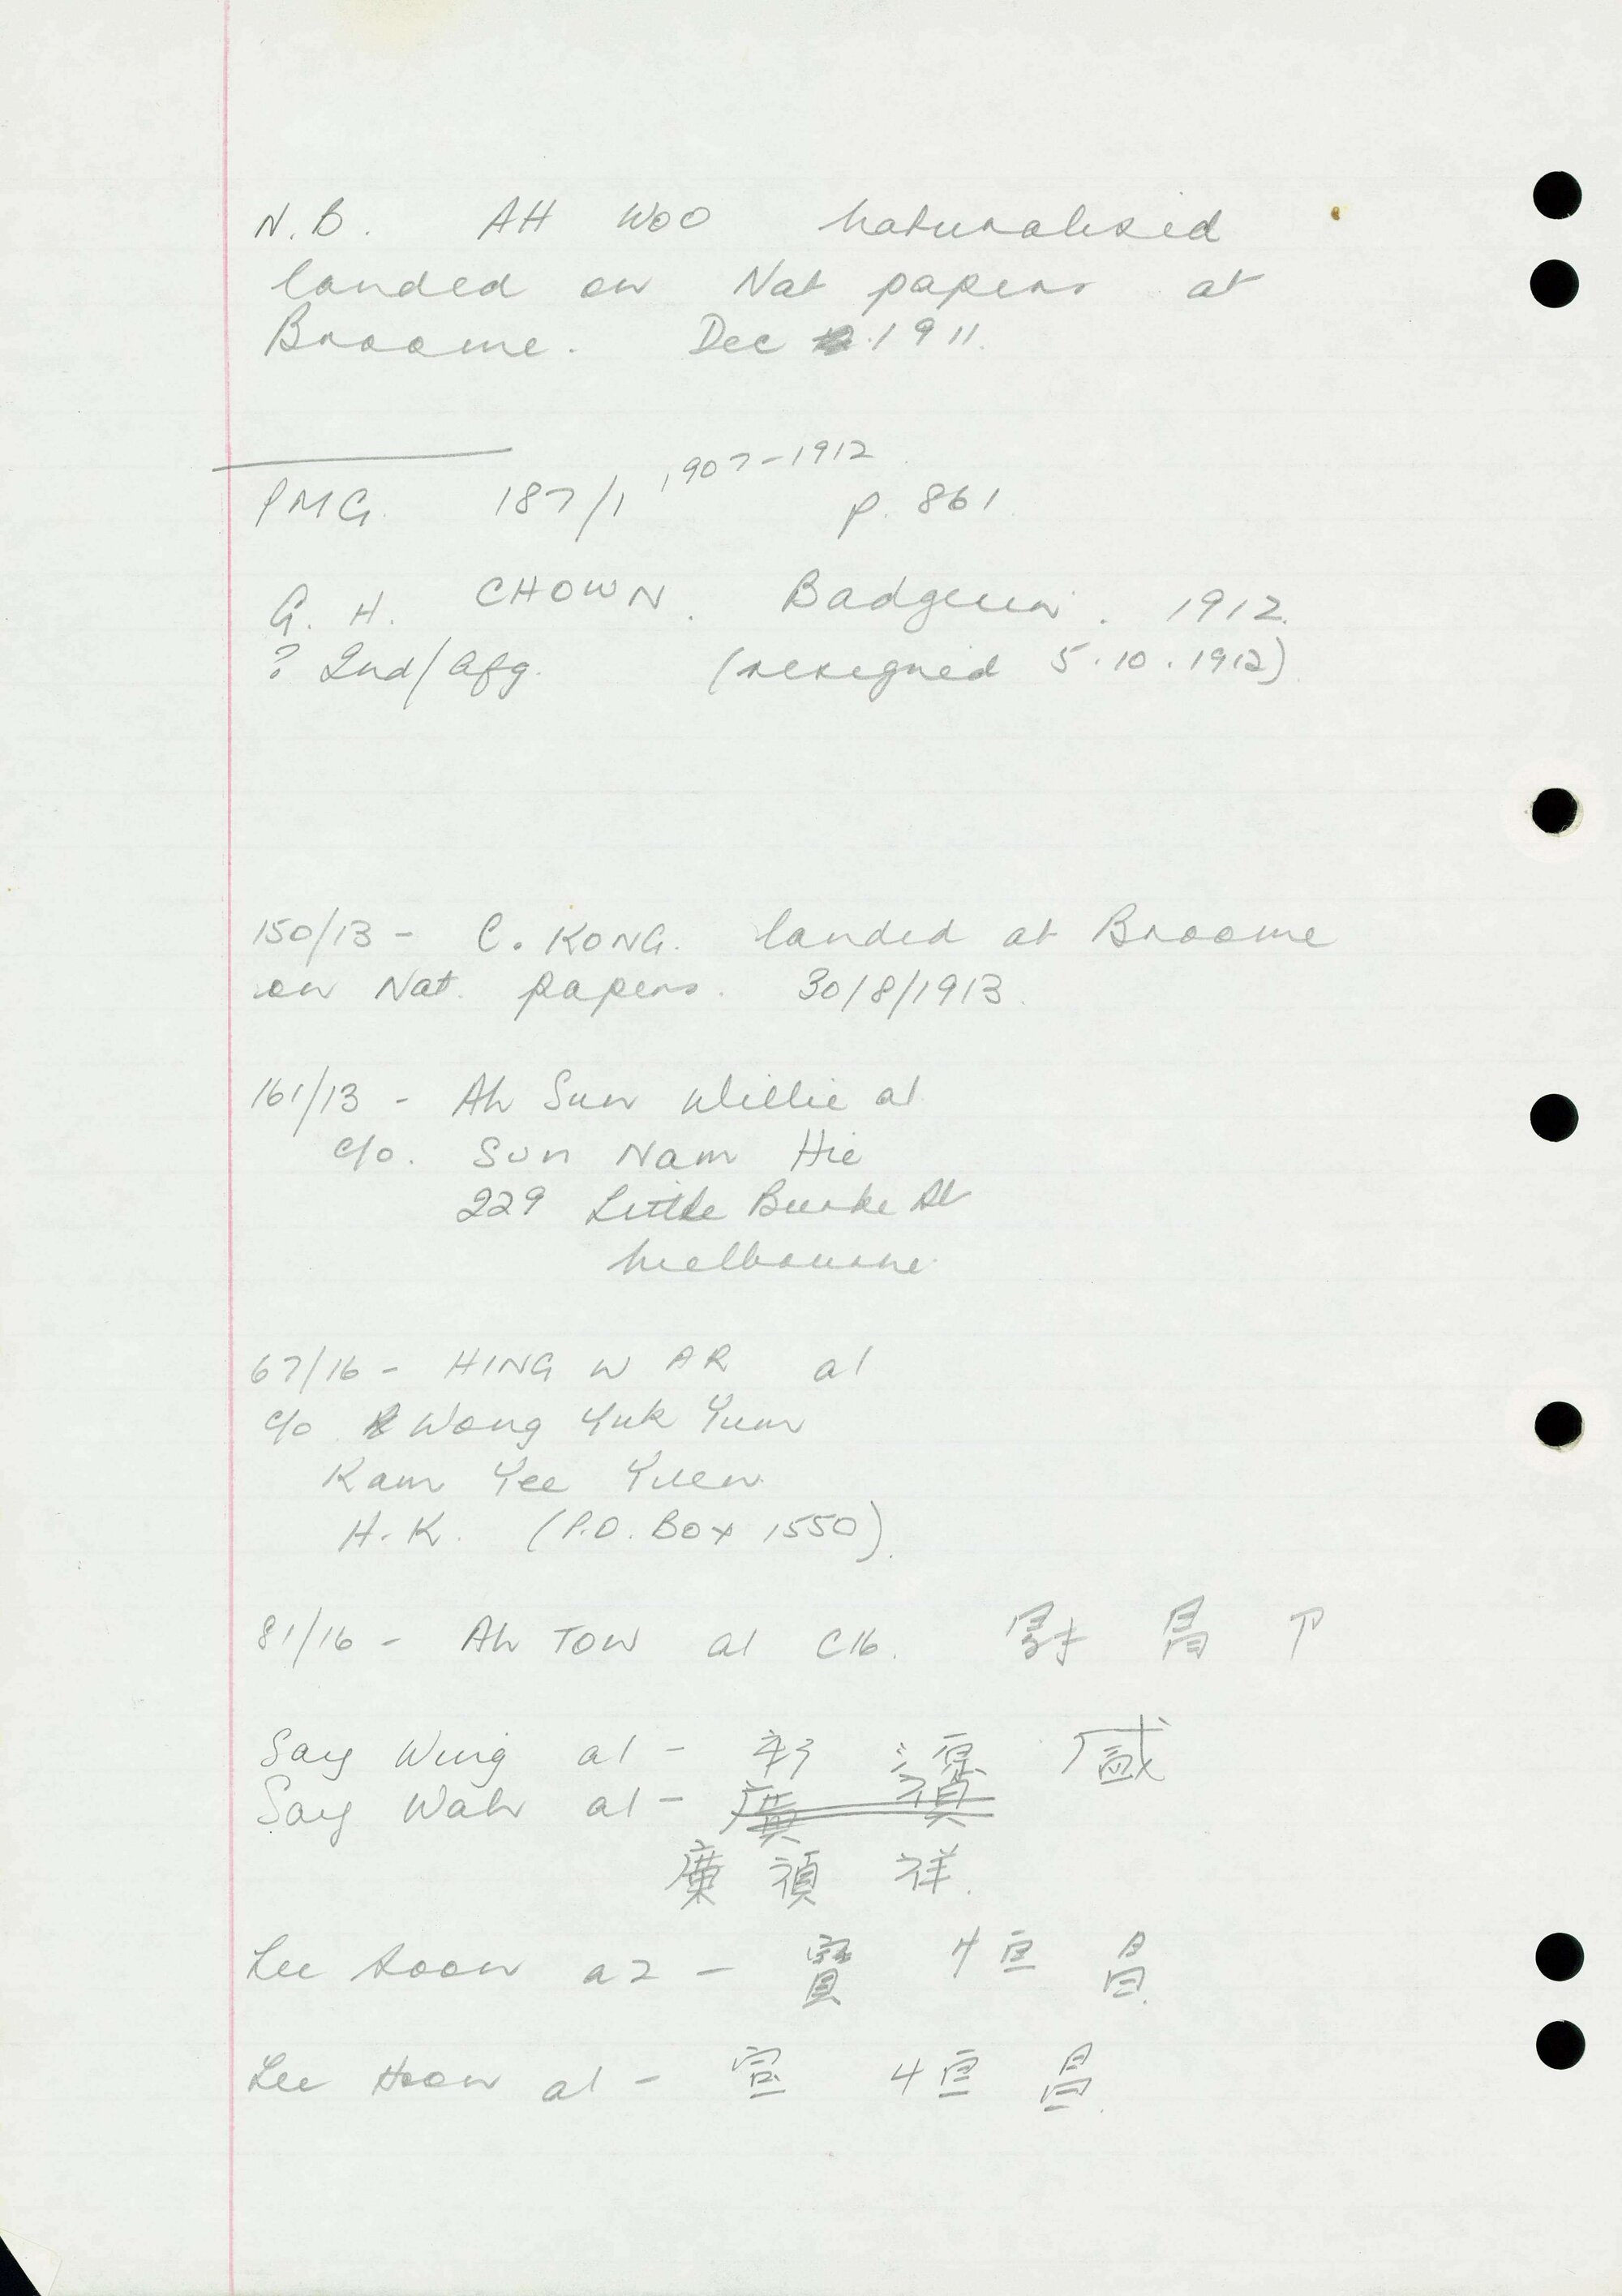 N.B. AH WOO naturalised
landed on Nat papers at
Broome. Dec 1911.
PMG. 187/1 1907-1912 p. 861
G. H. CHOWN. Badgeen. 1912.
? Ind/Afg. (resigned 5.10.1912)
150/13 - C. KONG. landed at Broome
on Nat. papers. 30/8/1913.
161/13 - Ah Sun Willie a1
c/o. Sun Nam Hie
229 Little Burke St
Melbourne
67/16 - HING WAR a1
c/o Wong Yuk Yum
Kam Yee Yuen
H.K. (P.O. Box 1550).
81/16 - Ah TOW a1 C16.
Say Wing a1 -
Say Wah a1 -
禎 祥.
Lee Soon a2 - 寶 昌.
Lee Hoon a1 - 昌.